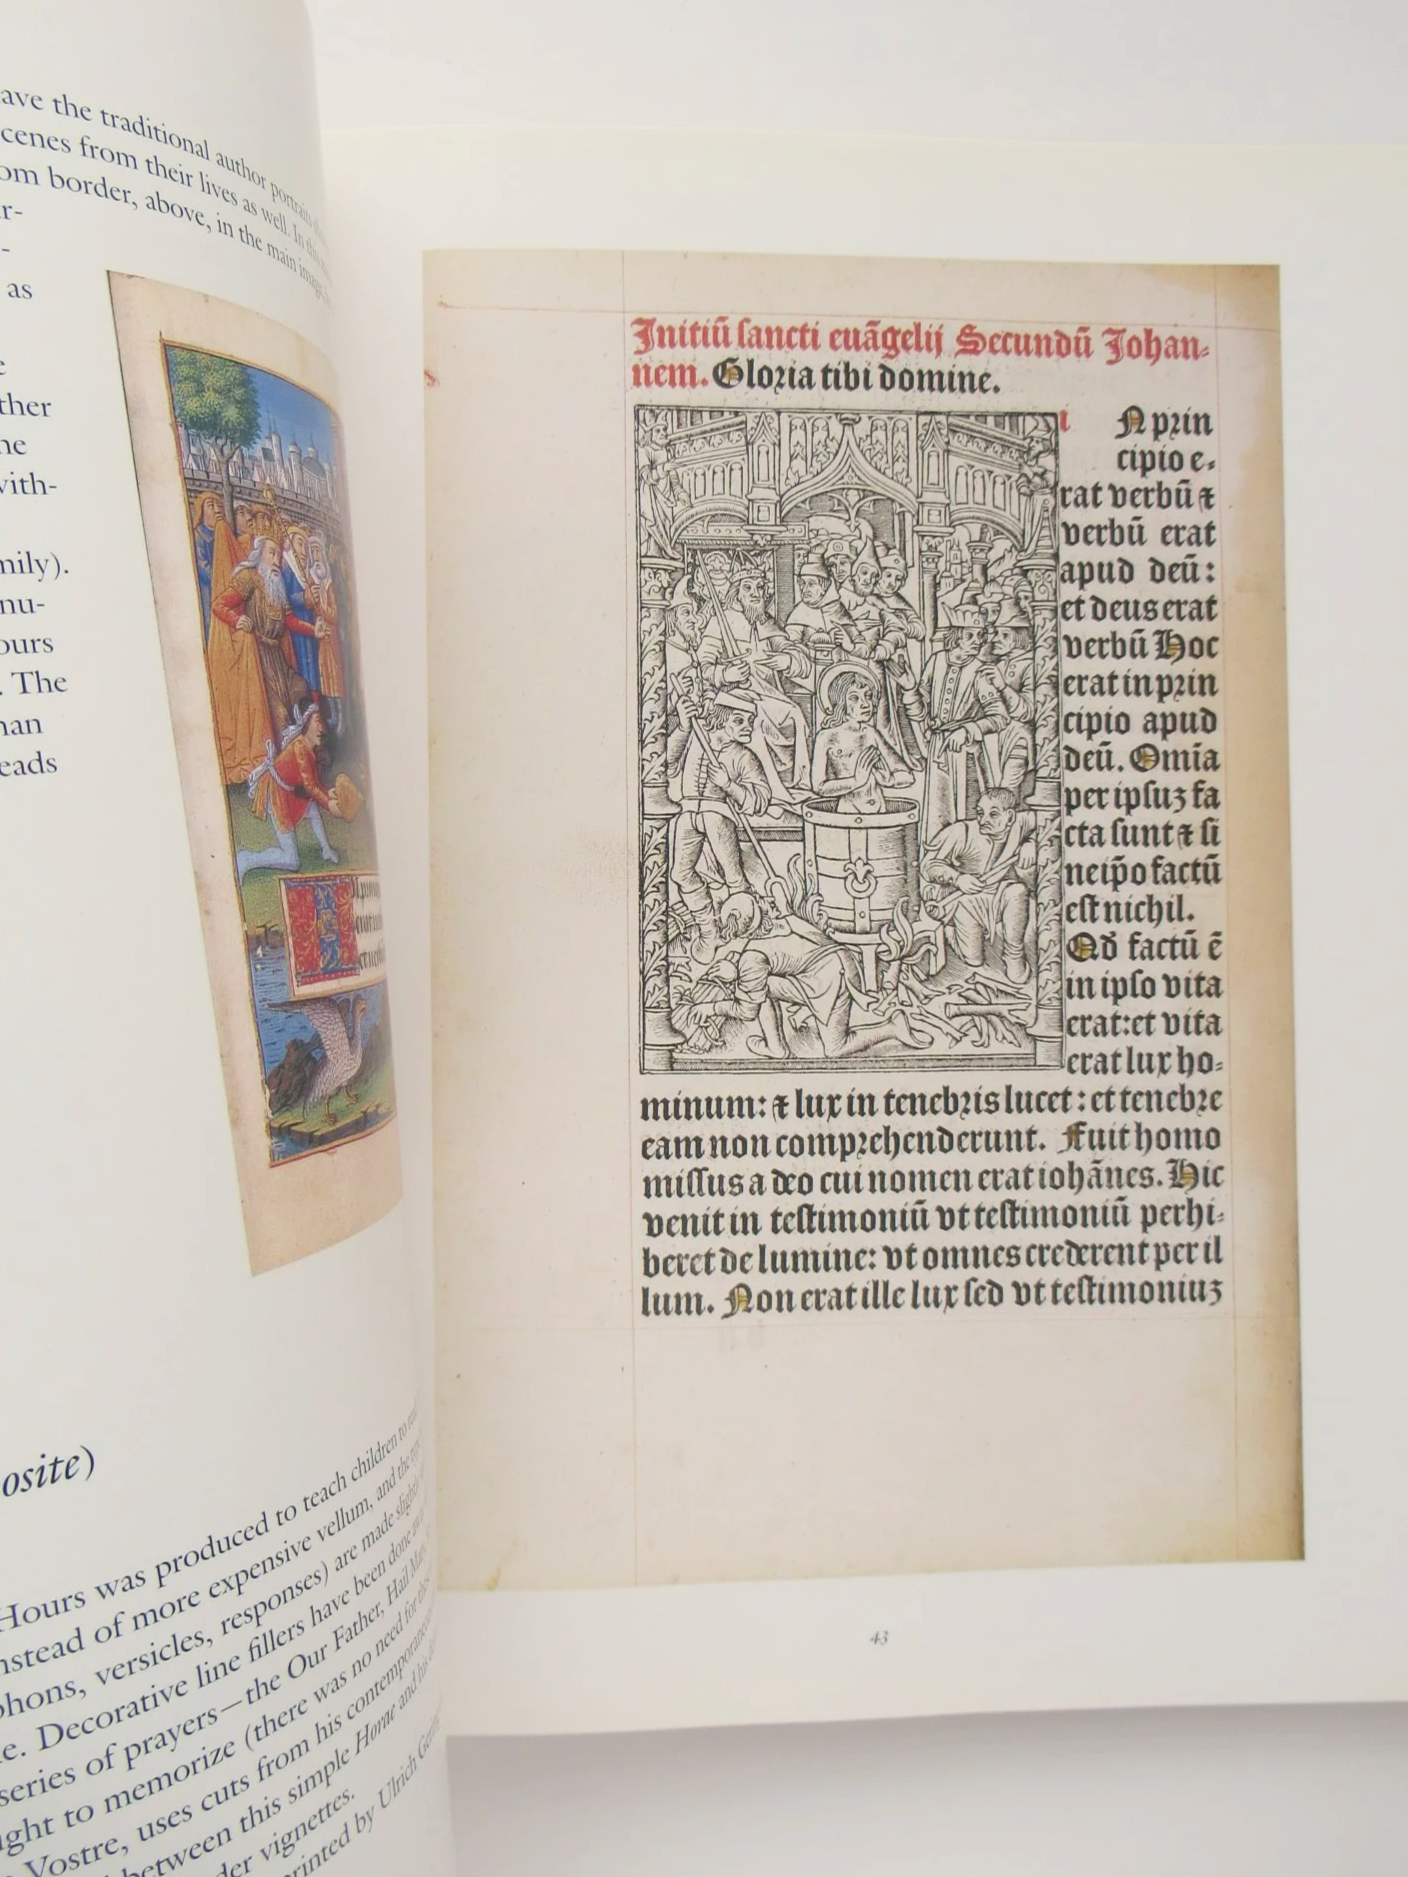 ave the traditional author
cenes from their lives as well. In
om border, above, in the main image
r-
-
as
e
ther
ne
vith-
mily).
nu-
ours
. The
nan
eads
osite)
Hours was produced to teach children to
nstead of more expensive vellum, and the
phons, versicles, responses) are made slightly
e. Decorative line fillers have been done
series of prayers—the Our Father, Hail Mary,
ght to memorize (there was no need for
Vostre, uses cuts from his
between this simple Horae and his
der vignettes.
printed by Ulrich
Initiū ſancti euāgelij Secundū Johan-
nem. Gloꝛia tibi domine.
i N pꝛin
cipio e-
rat verbū ⁊
verbū erat
apud deū:
et deus erat
verbū Hoc
erat in pꝛin
cipio apud
deū. Omīa
per ipſuꝫ fa
cta ſunt ⁊ ſi
ne ip̄o factū
eſt nichil.
Qḋ factū ē
in ipſo vita
erat: et vita
erat lux ho-
minum: ⁊ lux in tenebꝛis lucet: et tenebꝛe
eam non compꝛehenderunt. Fuit homo
miſſus a deo cui nomen erat iohānes. Hic
venit in teſtimoniū vt teſtimoniū perhi-
beret de lumine: vt omnes crederent per il
lum. Non erat ille lux ſed vt teſtimoniuꝫ
43